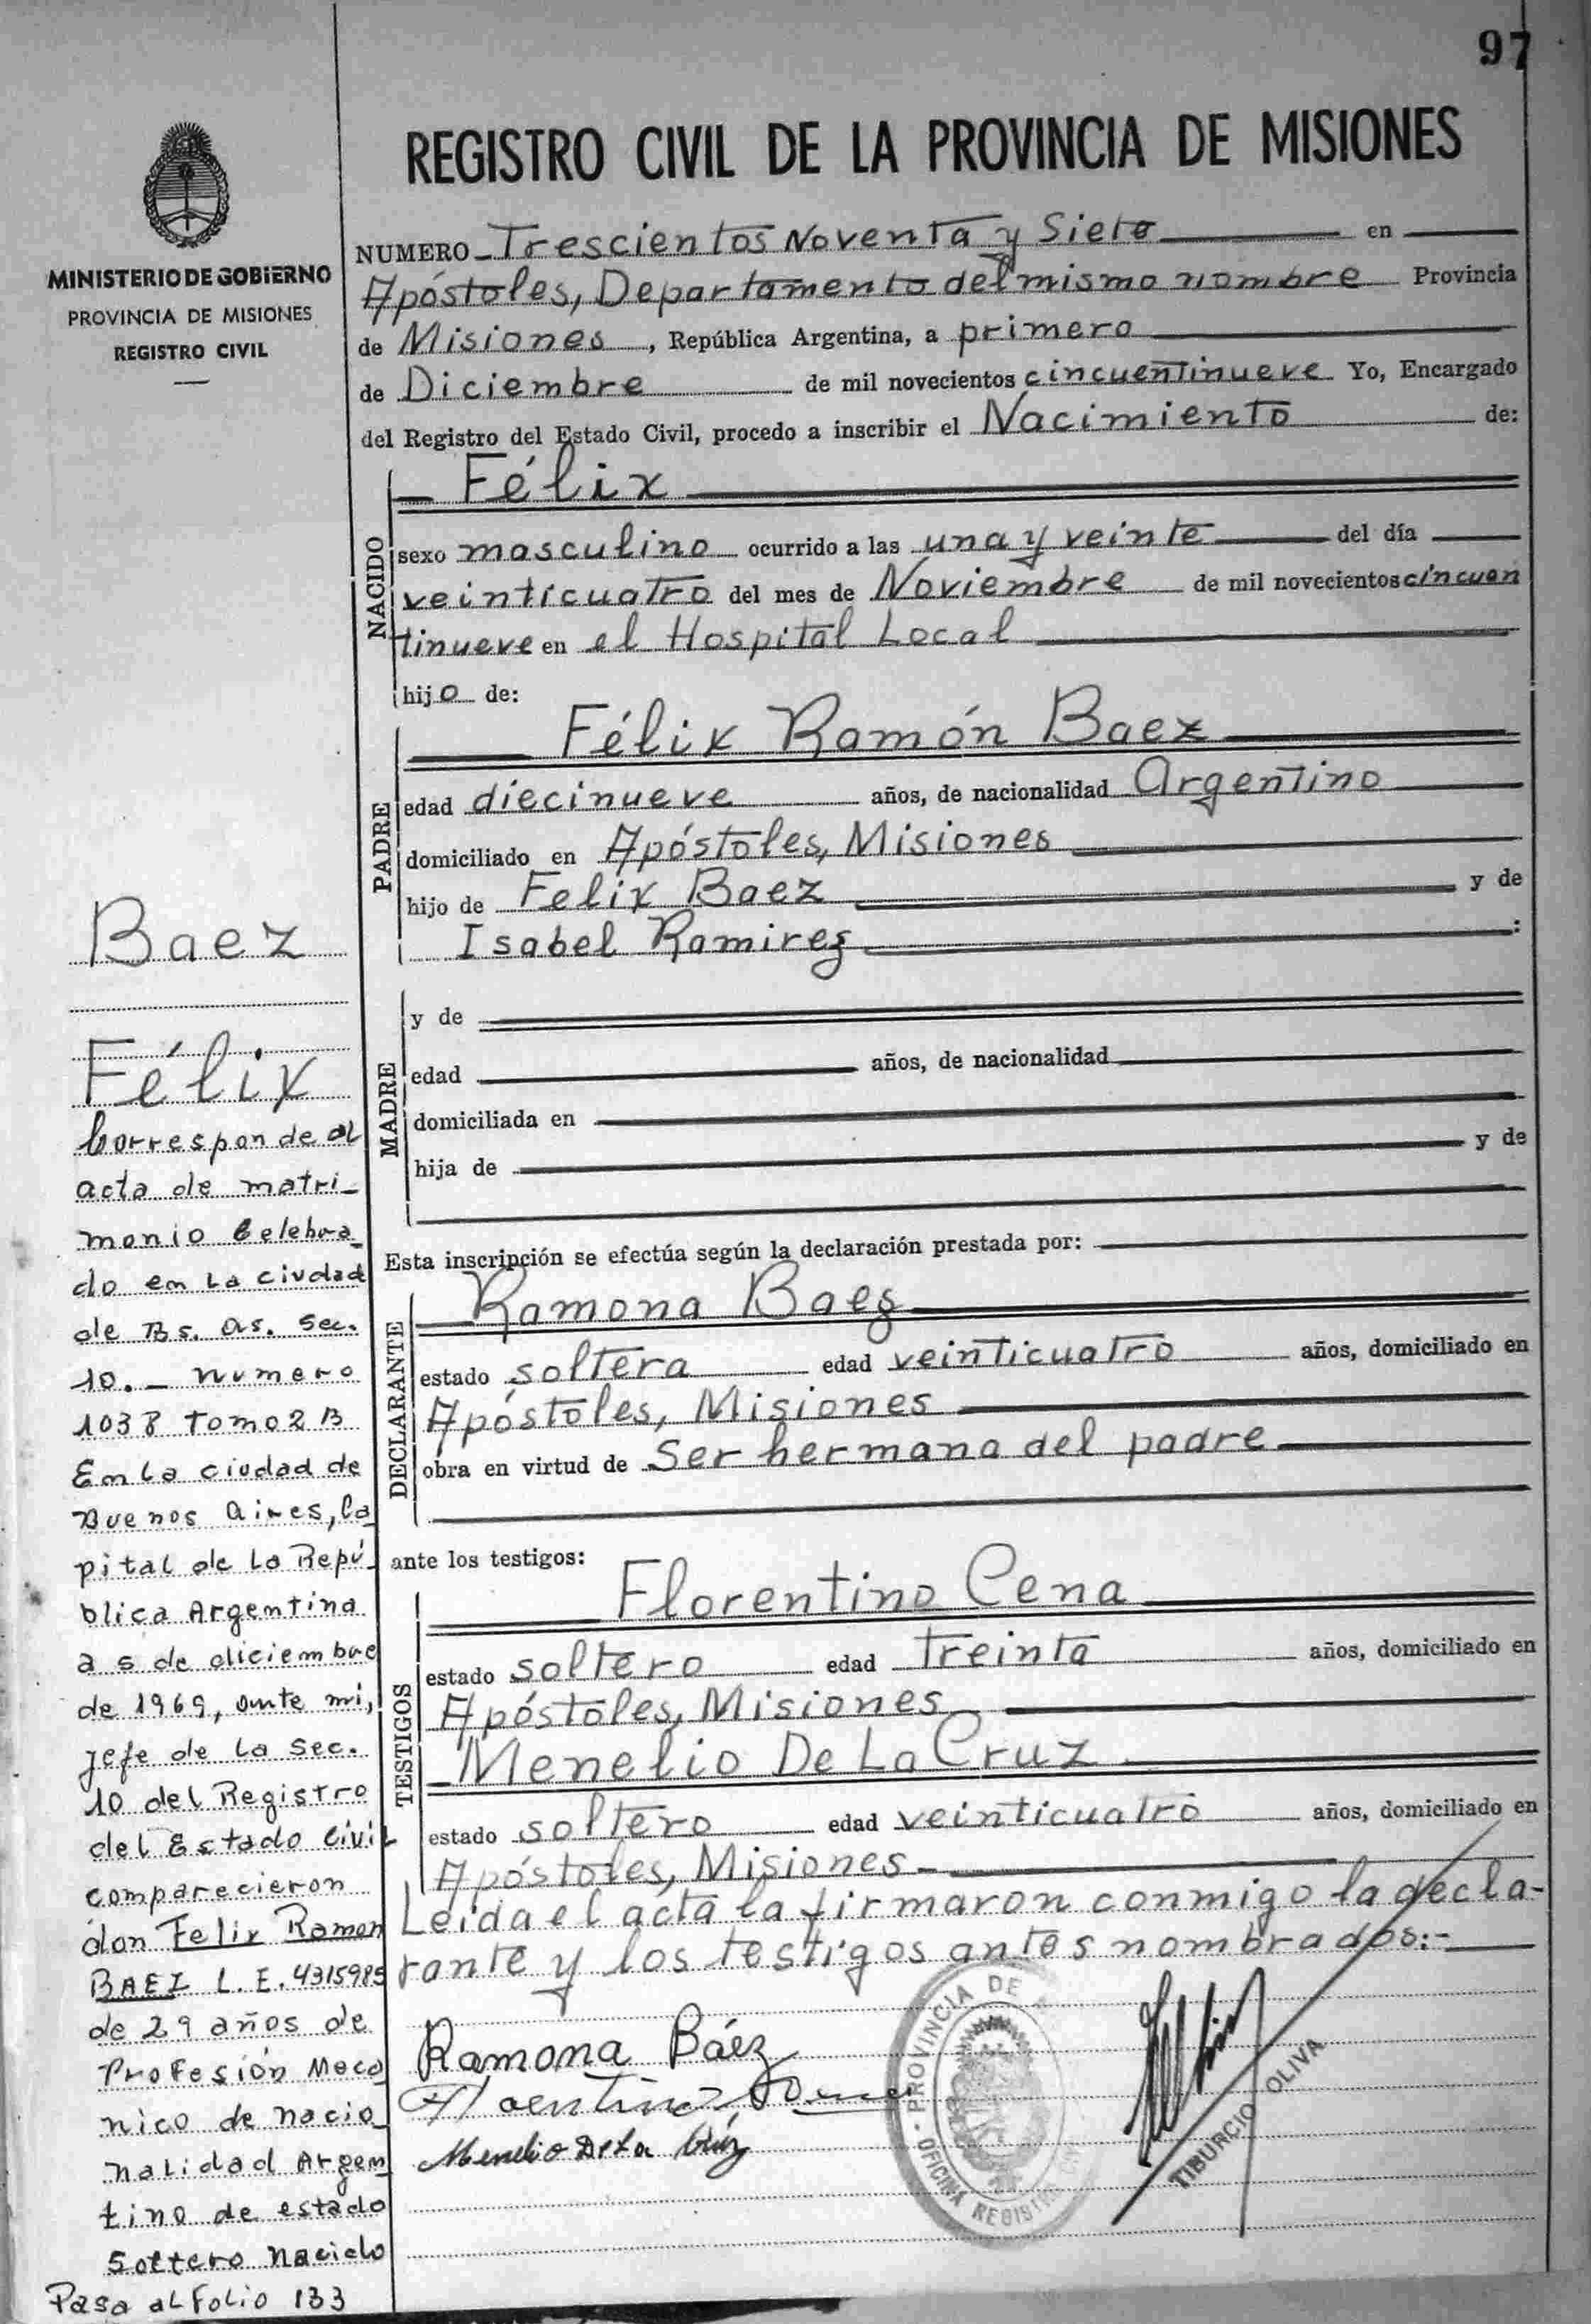 97
REGISTRO CIVIL DE LA PROVINCIA DE MISIONES
MINISTERIO DE GOBIERNO
PROVINCIA DE MISIONES
REGISTRO CIVIL
NUMERO Trescientos Noventa y Siete en
Apóstoles, Departamento del mismo nombre Provincia
de Misiones, República Argentina, a primero
de Diciembre de mil novecientos cincuentinueve Yo, Encargado
del Registro del Estado Civil, procedo a inscribir el Nacimiento de:
NACIDO
Félix
sexo masculino ocurrido a las una y veinte del día
veinticuatro del mes de Noviembre de mil novecientos cincuen
tinueve en el Hospital Local
hijo de:
PADRE
Félix Ramón Baez
edad diecinueve años, de nacionalidad Argentino
domiciliado en Apóstoles, Misiones
hijo de Felix Baez y de
Isabel Ramirez :
MADRE
y de
edad años, de nacionalidad
domiciliada en
hija de y de
Esta inscripción se efectúa según la declaración prestada por:
DECLARANTE
Ramona Baez
estado soltera edad veinticuatro años, domiciliado en
Apóstoles, Misiones
obra en virtud de Ser hermana del padre
ante los testigos:
TESTIGOS
Florentino Cena
estado soltero edad treinta años, domiciliado en
Apóstoles, Misiones
Menelio De La Cruz
estado soltero edad veinticuatro años, domiciliado en
Apóstoles, Misiones
Leida el acta la firmaron conmigo la decla-
rante y los testigos antes nombrados:-
Ramona Báez
Menelio De La Cruz
PROVINCIA DE
OFICINA REGISTRO
TIBURCIO OLIVA
Baez
Félix
Corresponde al
acta de matri-
monio Celebra
do em La ciudad
de Bs. as. Sec.
10. - numero
1038 Tomo 2 B
Em La ciudad de
Buenos Aires, Ca
pital de La Repú-
blica Argentina
a 5 de diciembre
de 1969, ante mi,
jefe de La Sec.
10 del Registro
del Estado Civil
comparecieron
don Felix Ramon
BAEZ L. E. 4315985
de 29 años de
Profesión Meca
nico de nacio
nalidad Argem
tino de estado
Soltero nacido
Pasa al Folio 133